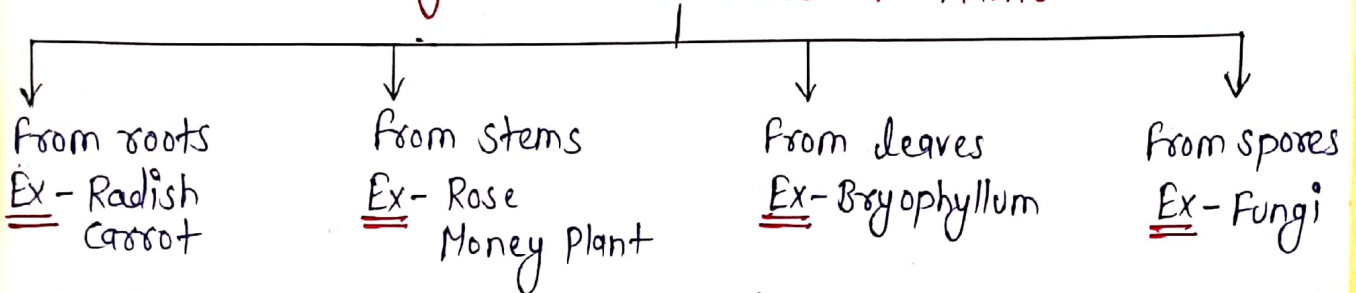 from roots
Ex - Radish
Carrot
from stems
Ex - Rose
Money Plant
from leaves
Ex - Bryophyllum
from spores
Ex - Fungi